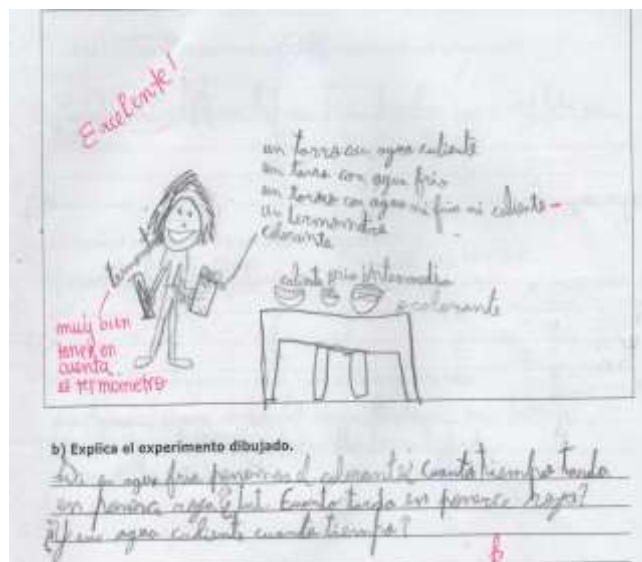 Excelente!
un tarro con agua caliente
un tarro con agua fria
un tarro con agua ni fria ni caliente
un termometro
colorante
caliente fria intermedia
colorante
muy bien
tener en
cuenta
el termometro
b) Explica el experimento dibujado.
en agua fria el colorante Cuanto tiempo tarda
en ponerse roja? Cuanto tarda en ponerce roja?
agua caliente cuanto tiempo?